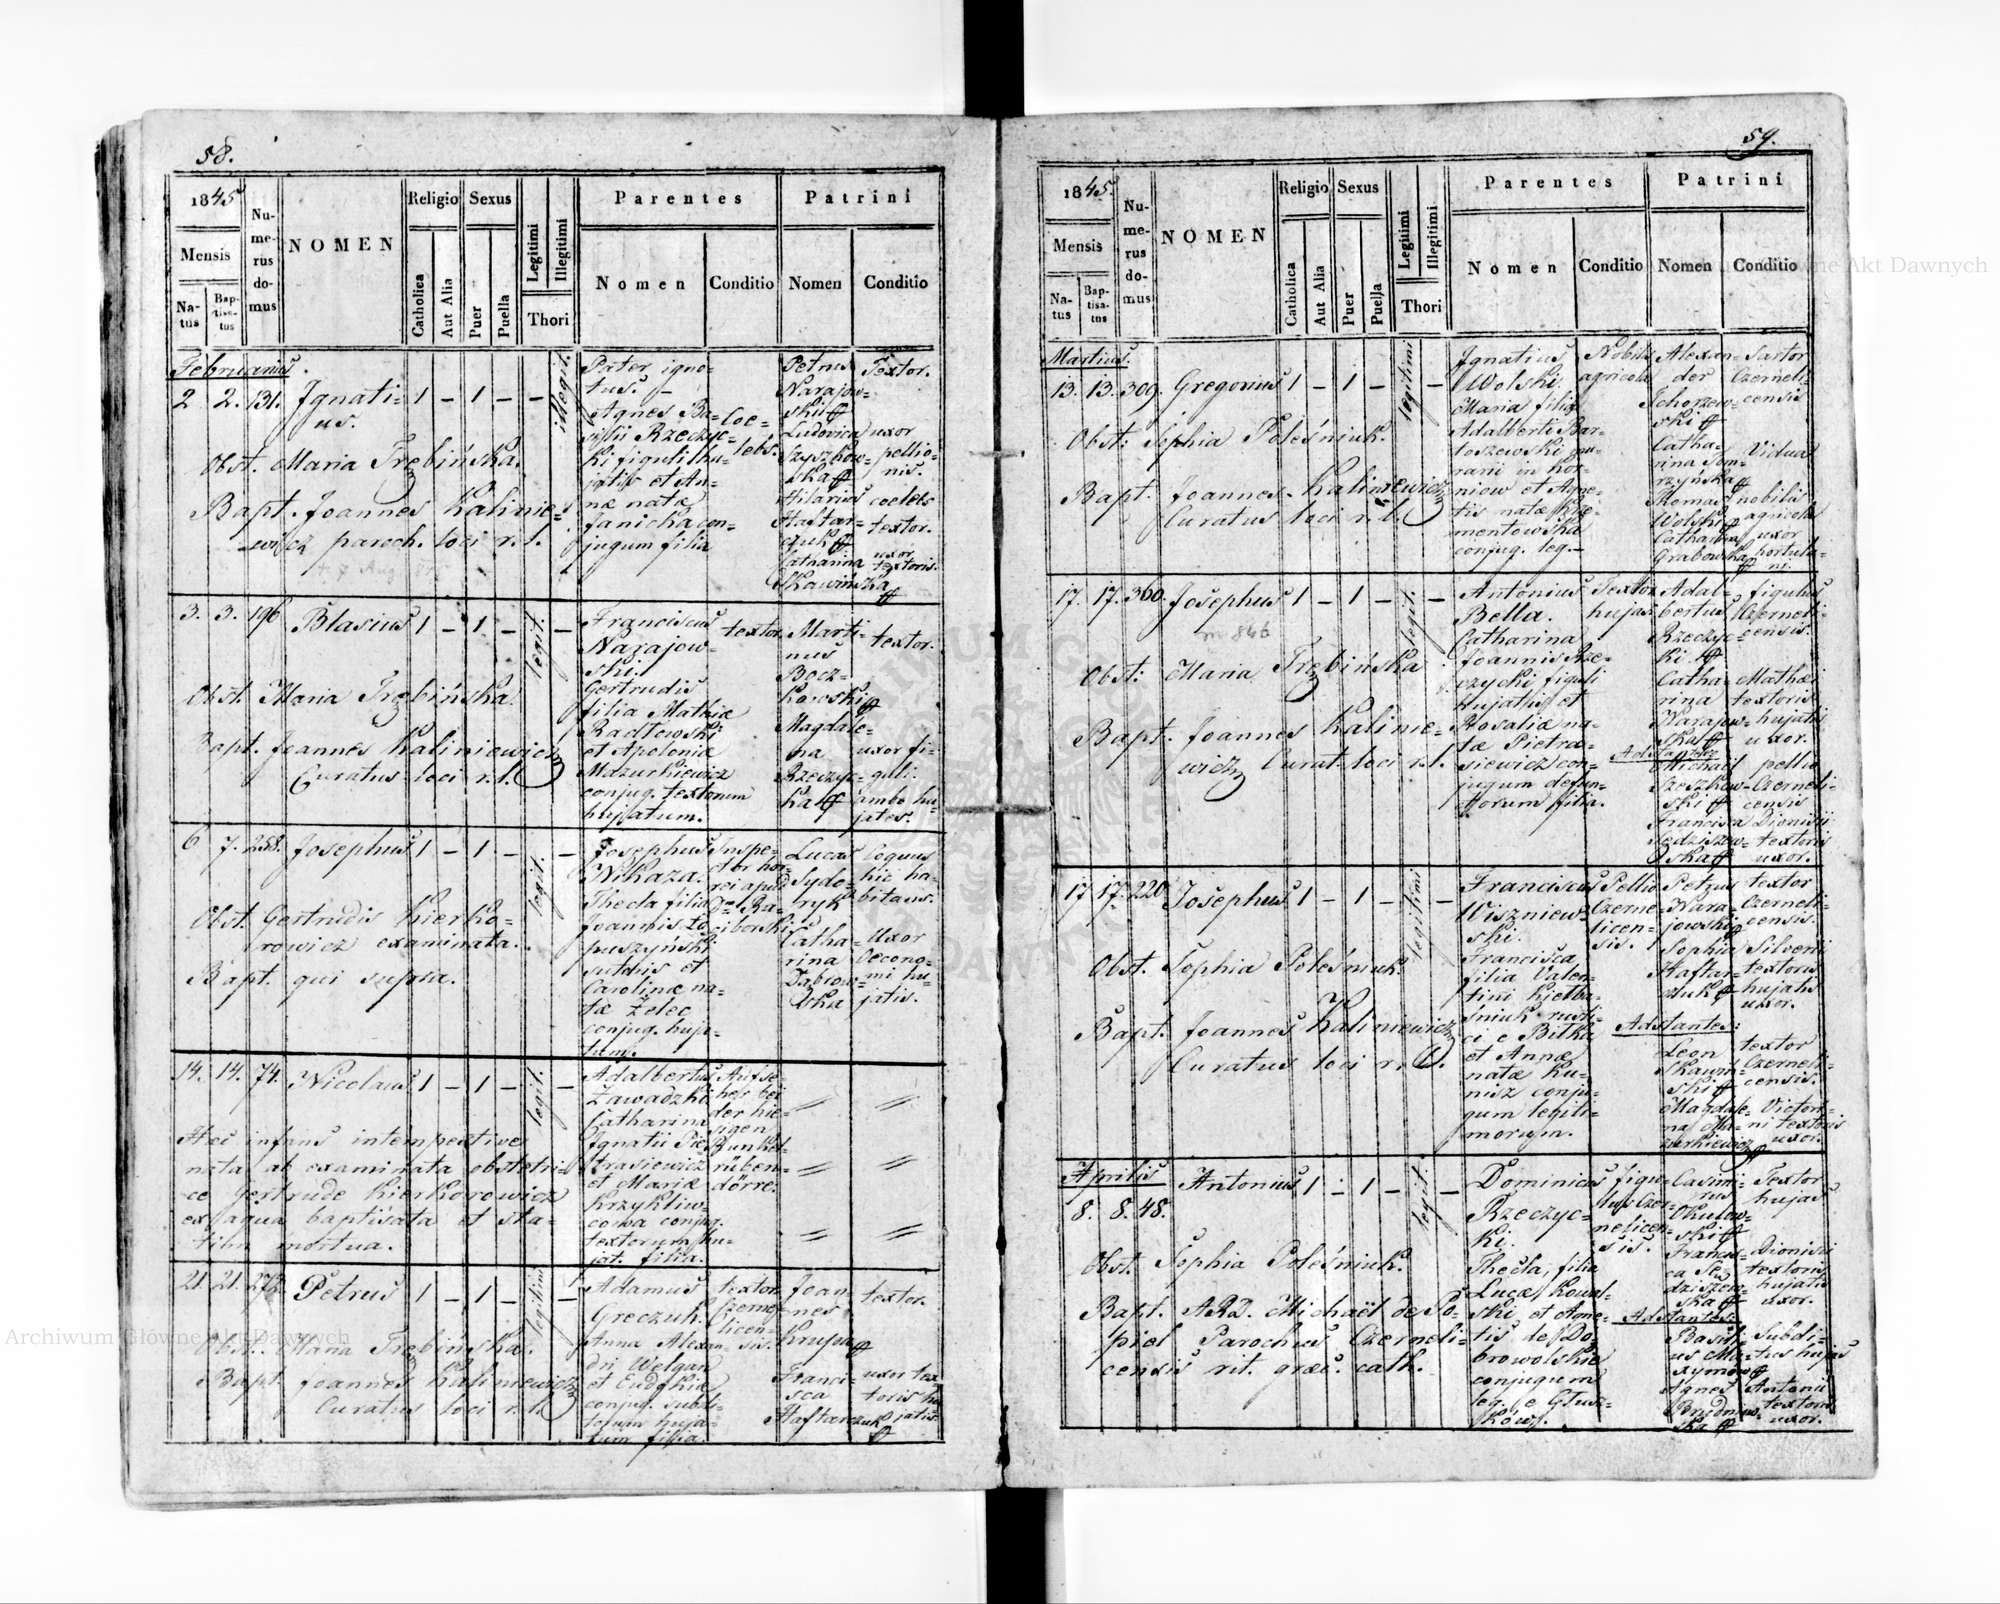 58.
1845
Mensis
Na-
tus
Bap-
tisa-
tus
Nu-
me-
rus
do-
mus
NOMEN
Religio
Catholica
Aut Alia
Sexus
Puer
Puella
Legitimi
Illegitimi
Thori
Parentes
Nomen
Conditio
Patrini
Nomen
Conditio
Februarius.
2 2. 131. Ignati=
us.
1 – 1 – –
illegit.
Obst. Maria Trębińska.
Bapt. Joannes Kalinie=
wicz paroch. loci r. l.
Pater igno=
tus. –
Agnes Ba=
silii Rzeczyc=
ki figuli hu=
jatis et An=
næ natæ
Janicka con=
jugum filia
Coe=
lebs.
Petrus
Narajow=
ski
Ludovica
Szyszkow=
ska
Hilarius
Haftar=
czuk
Catharina
Skawińska
Textor.
uxor
pellio=
nis.
coelebs
textor.
uxor
textoris.
3. 3. 196 Blasius 1 – 1 – –
legit.
Obst. Maria Trębińska.
Bapt. Joannes Kaliniewicz
Curatus loci r. l.
Franciscus
Narajow=
ski.
Gertrudis
filia Mathiæ
Radłowski
et Apoloniæ
Mazurkiewicz
conjug. textorum
hujatum.
textor
Marti=
nus
Bocz=
kowski
Magdale=
na
Rzeczyc=
ka
textor.
uxor fi=
guli.
ambo hu=
jates.
6 7. 258. Josephus 1 – 1 – –
legit.
Obst. Gertrudis Kierko=
rowicz examinata.
Bapt. qui supra.
Josephus
Nikaza.
Thecla filia
Joannis Ło=
puszyński
sutoris et
Carolinæ na=
tæ Zelec
conjug. huja=
tum.
Inspe=
ctor hor=
rei apud
Dm Ra=
ciborski
Lucas
Sydo=
ryk
Catha=
rina
Dąbrow=
ska
Coquus
hic ha=
bitans.
Uxor
Oecono=
mi hu=
jatis.
14. 14. 74. Nicolaus 1 – 1 – –
legit.
Hæc infans intempestive
nata ab examinata obstetri=
ce Gertrude Kierkorowicz
ex aqua baptisata et sta=
tim mortua.
Adalbertus
Zawadzki
Catharina
Ignatii Pie=
trasiewicz
et Mariæ
Krzykliw=
cowa conjug.
textorum hu=
jat. filia.
Aufse=
her bei
der hie=
sigen
Runkel=
rüben=
dörre.
21. 21. 272. Petrus 1 – 1 – –
legitimi
Obst. Maria Trębińska.
Bapt. Joannes Kaliniewicz
Curatus loci r. l.
Adamus
Greczuk.
Anna Alexan=
dri Welgan
et Eudokiæ
conjug. subdi=
torum huja=
tum filia.
textor
Czerne=
licen=
sis.
Joan=
nes
Krupa
Franci=
sca
Haftarczuk
textor.
uxor tex
toris hu
jatis.
59.
1845.
Mensis
Na-
tus
Bap-
tisa-
tus
Nu-
me-
rus
do-
mus
NOMEN
Religio
Catholica
Aut Alia
Sexus
Puer
Puella
Legitimi
Illegitimi
Thori
Parentes
Nomen
Conditio
Patrini
Nomen
Conditio
Martius.
13. 13. 309. Gregorius 1 – 1 – –
legitimi
Obst: Sophia Poleśniuk.
Bapt. Joannes Kaliniewicz
Curatus loci r. l.
Ignatius
Wolski.
Maria filia
Adalberti Bar=
toszewski
in Hor=
niow et Agne=
tis natæ Krze=
mentowska
conjug. leg.
Nobilis
agricola
Alexan=
der
Schorzew=
ski
Catha=
rina Som=
rzyńska
Thomas
Wolski
Catharina
Grabowska
Sartor
Czerneli=
censis
Vidua
nobilis
agricola
uxor
hortula=
ni.
17. 17. 360. Josephus 1 – 1 – –
legit.
m 846
Obst: Maria Trębińska
Bapt. Joannes Kalinie=
wicz Curat. loci r. l.
Antonius
Bella.
Catharina
Joannis Rze=
czycki figuli
hujatis et
Rosaliæ na=
tæ Pietra=
siewicz con=
jugum defun=
ctorum filia.
Textor
hujas
Adal=
bertus
Rzeczyc=
ki
Catha=
rina
Narajow=
ska
Adstantes
Michaël
Szeszkow=
ski
Francisca
Sędziszew=
ska
figulus
Czerneli=
censis.
Mathæi
textoris
hujatis
uxor.
pellio
Czerneli=
censis
Dionisii
textoris
uxor.
17 17. 220 Josephus 1 – 1 – –
legitimi
Obst. Sophia Poleśniuk.
Bapt. Joannes Kaliniewicz
Curatus loci r. l.
Franciscus
Wiszniew=
ski.
Francisca
filia Valen=
tini Kiełba=
śniuk rusti=
ci e Bitka
et Annæ
natæ Ku=
nisz conju=
gum legiti=
morum.
Pellio
Czerne=
licen=
sis.
Petrus
Nara=
jowski
Sophia
Haftar=
czuk
Adstantes:
Leon
Skawiń=
ski
Magdale=
na Ma=
zurkiewicz
textor
Czerneli=
censis.
Silverii
textoris
hujatis
uxor.
textor
Czerneli=
censis.
Victori=
ni textoris
uxor.
Aprilis
8. 8. 48. Antonius 1 – 1 – –
legit.
Obst. Sophia Poleśniuk.
Bapt. ARD. Michaël de Po=
piel Parochus Czerneli=
censis rit. græc. cath.
Dominicus
Rzeczyc=
ki.
Thecla, filia
Lucæ Kowal=
ski et Agne=
tis de Do=
browolskie
conjugum
leg. e Głusz=
kow.
figu=
lus Czer=
nelicen=
sis.
Casimi=
rus
Okulow=
ski
Francis=
ca Sę=
dziszew=
ska
Adstantes:
Basili=
us Ma=
xymow
Agnes
Brudniew=
ska
Textor
hujas
Dionisii
textoris
hujatis
uxor.
Subdi=
tus hujas
Antonii
textoris
uxor.
Archiwum Główne Akt Dawnych